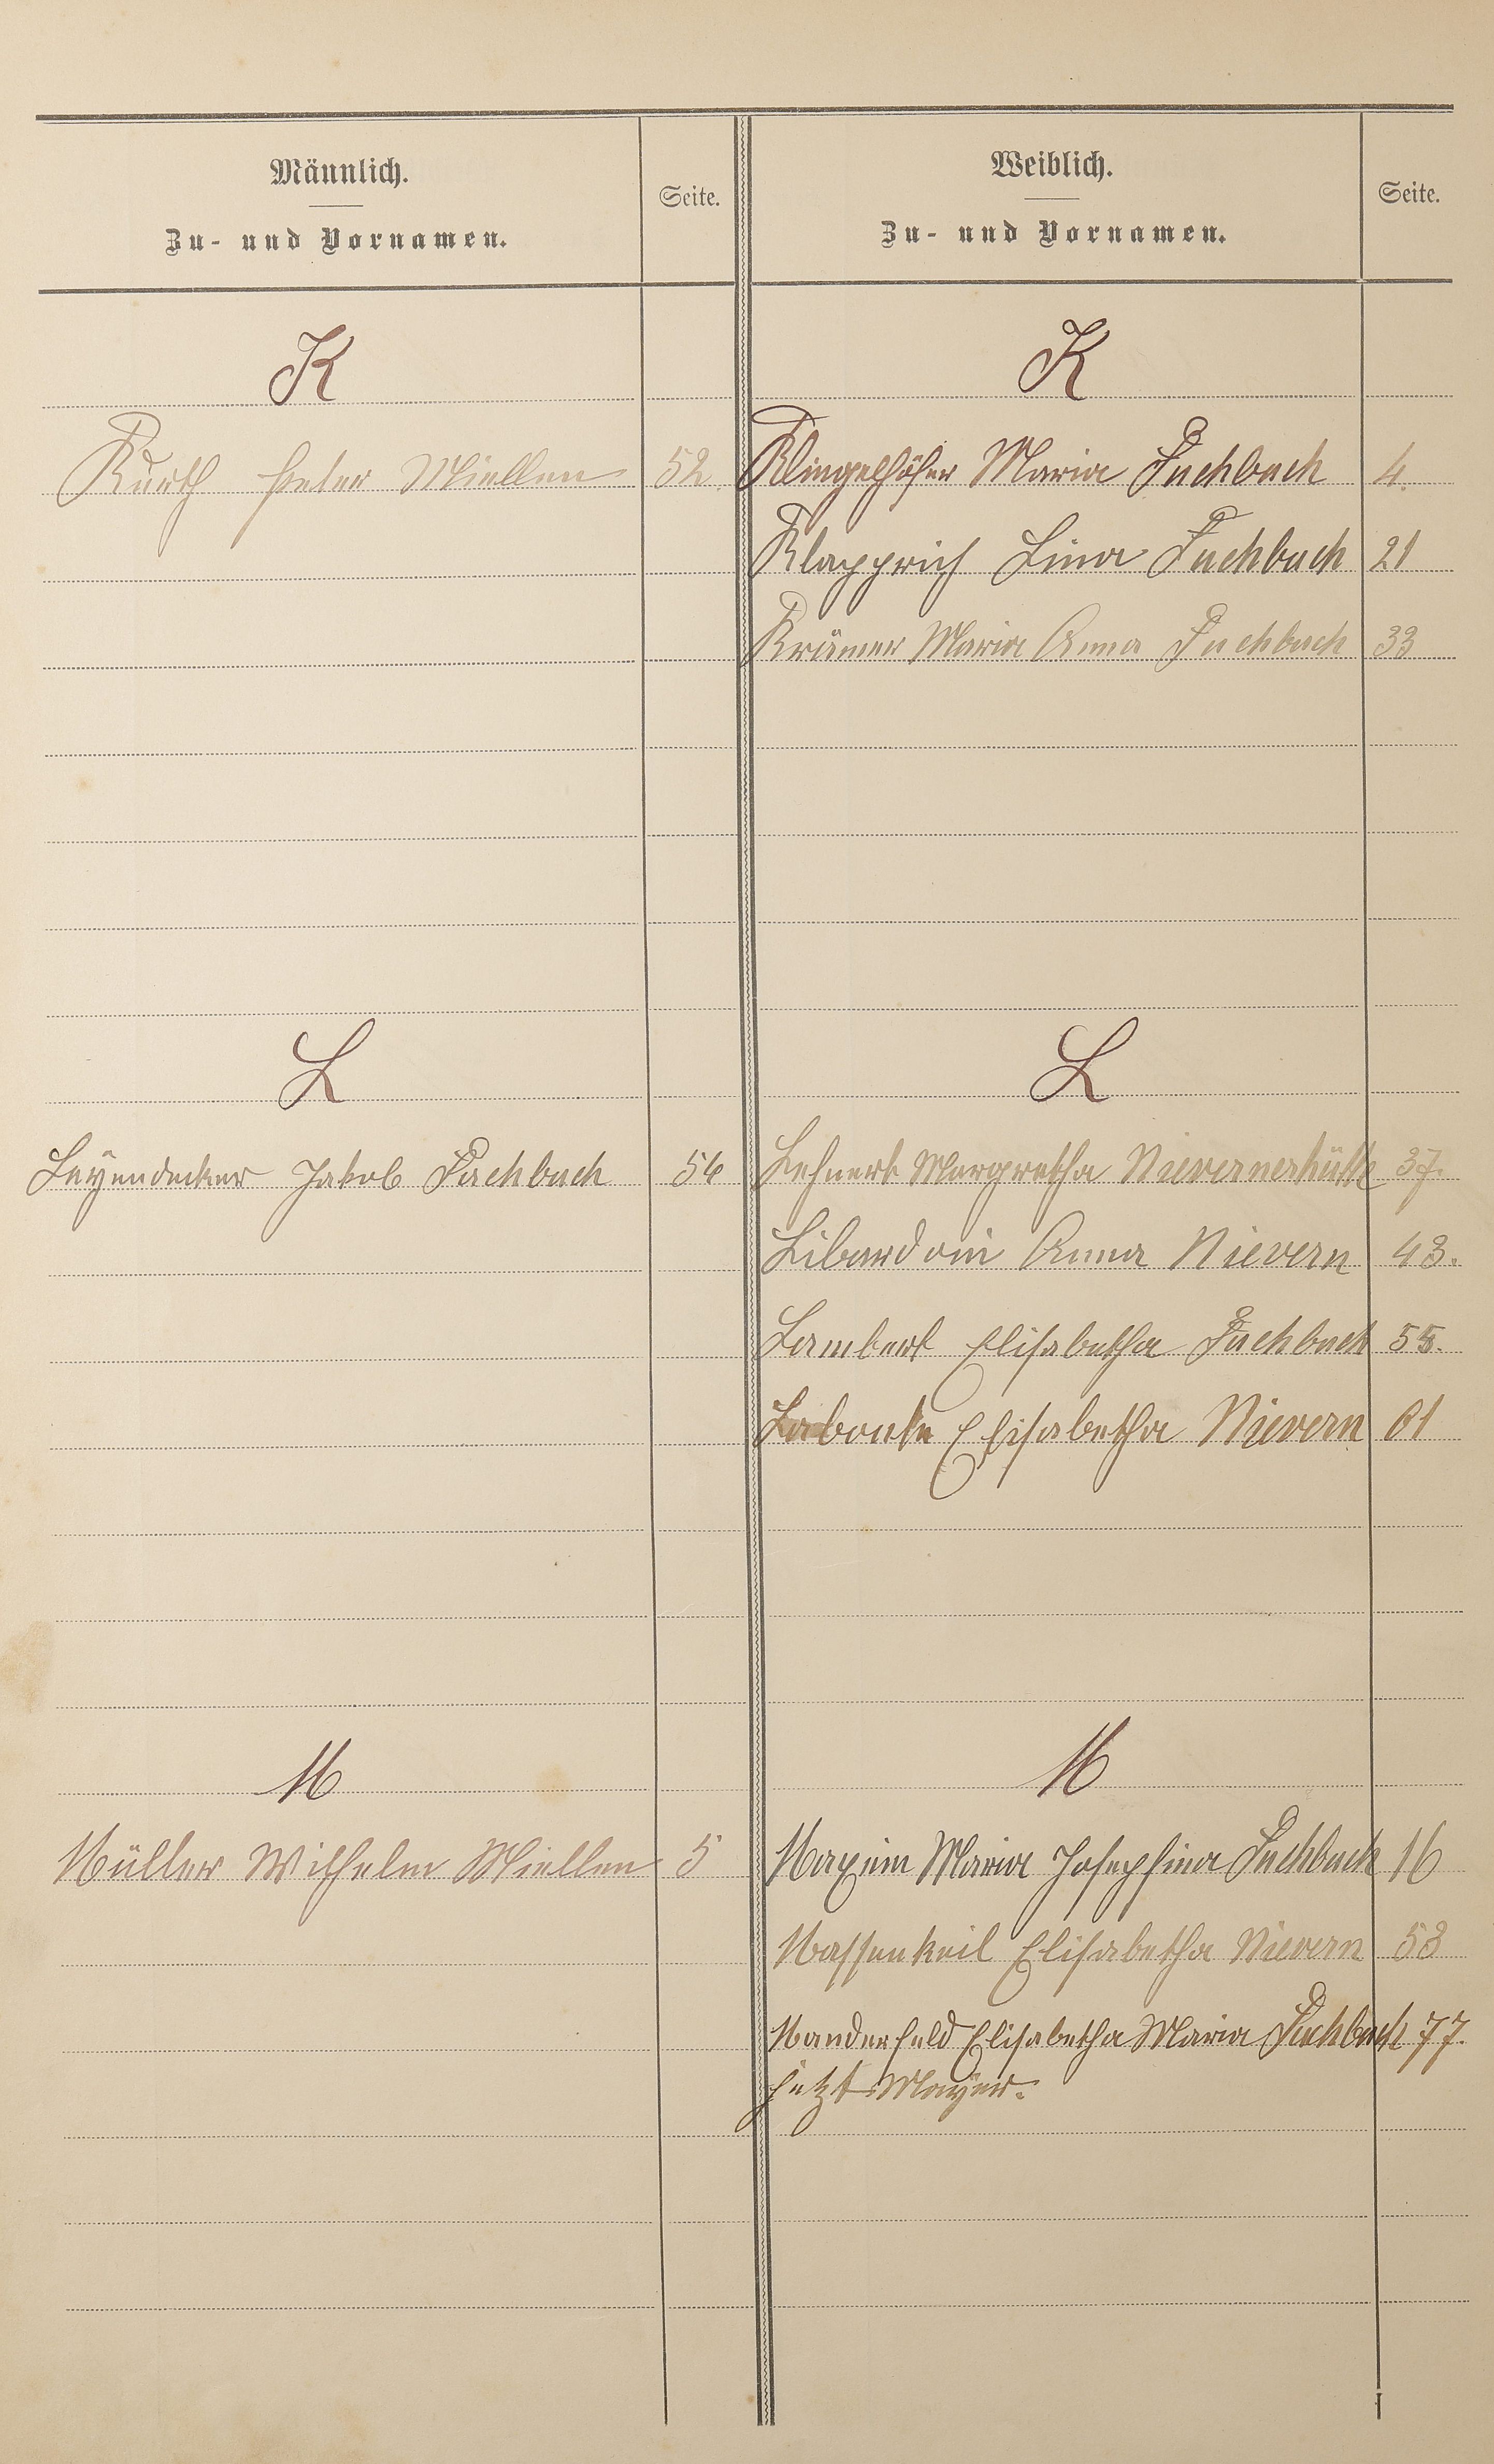 Männlich.
Zu- und Vornamen.
Seite.
Weiblich.
Zu- und Vornamen.
Seite.
K
K
Kurth Peter Miellen 52.
Klingelhöfer Maria Fachbach 4.
Klapprich Lina Fachbach 21
Krämer Maria Anna Fachbach 33
L
L
Leyendecker Jakob Fachbach 54
Lehnert Margretha Nievernerhütte 37.
Libardoni Anna Nievern 43.
Lambert Elisabetha Fachbach 55.
Labonte Elisabetha Nievern 61
M
M
Müller Wilhelm Miellen 5
Maxim Maria Josephina Fachbach 16
Massenkeil Elisabetha Nievern 53
Manderfeld Elisabetha Maria Fachbach 77.
jetzt Mayer.